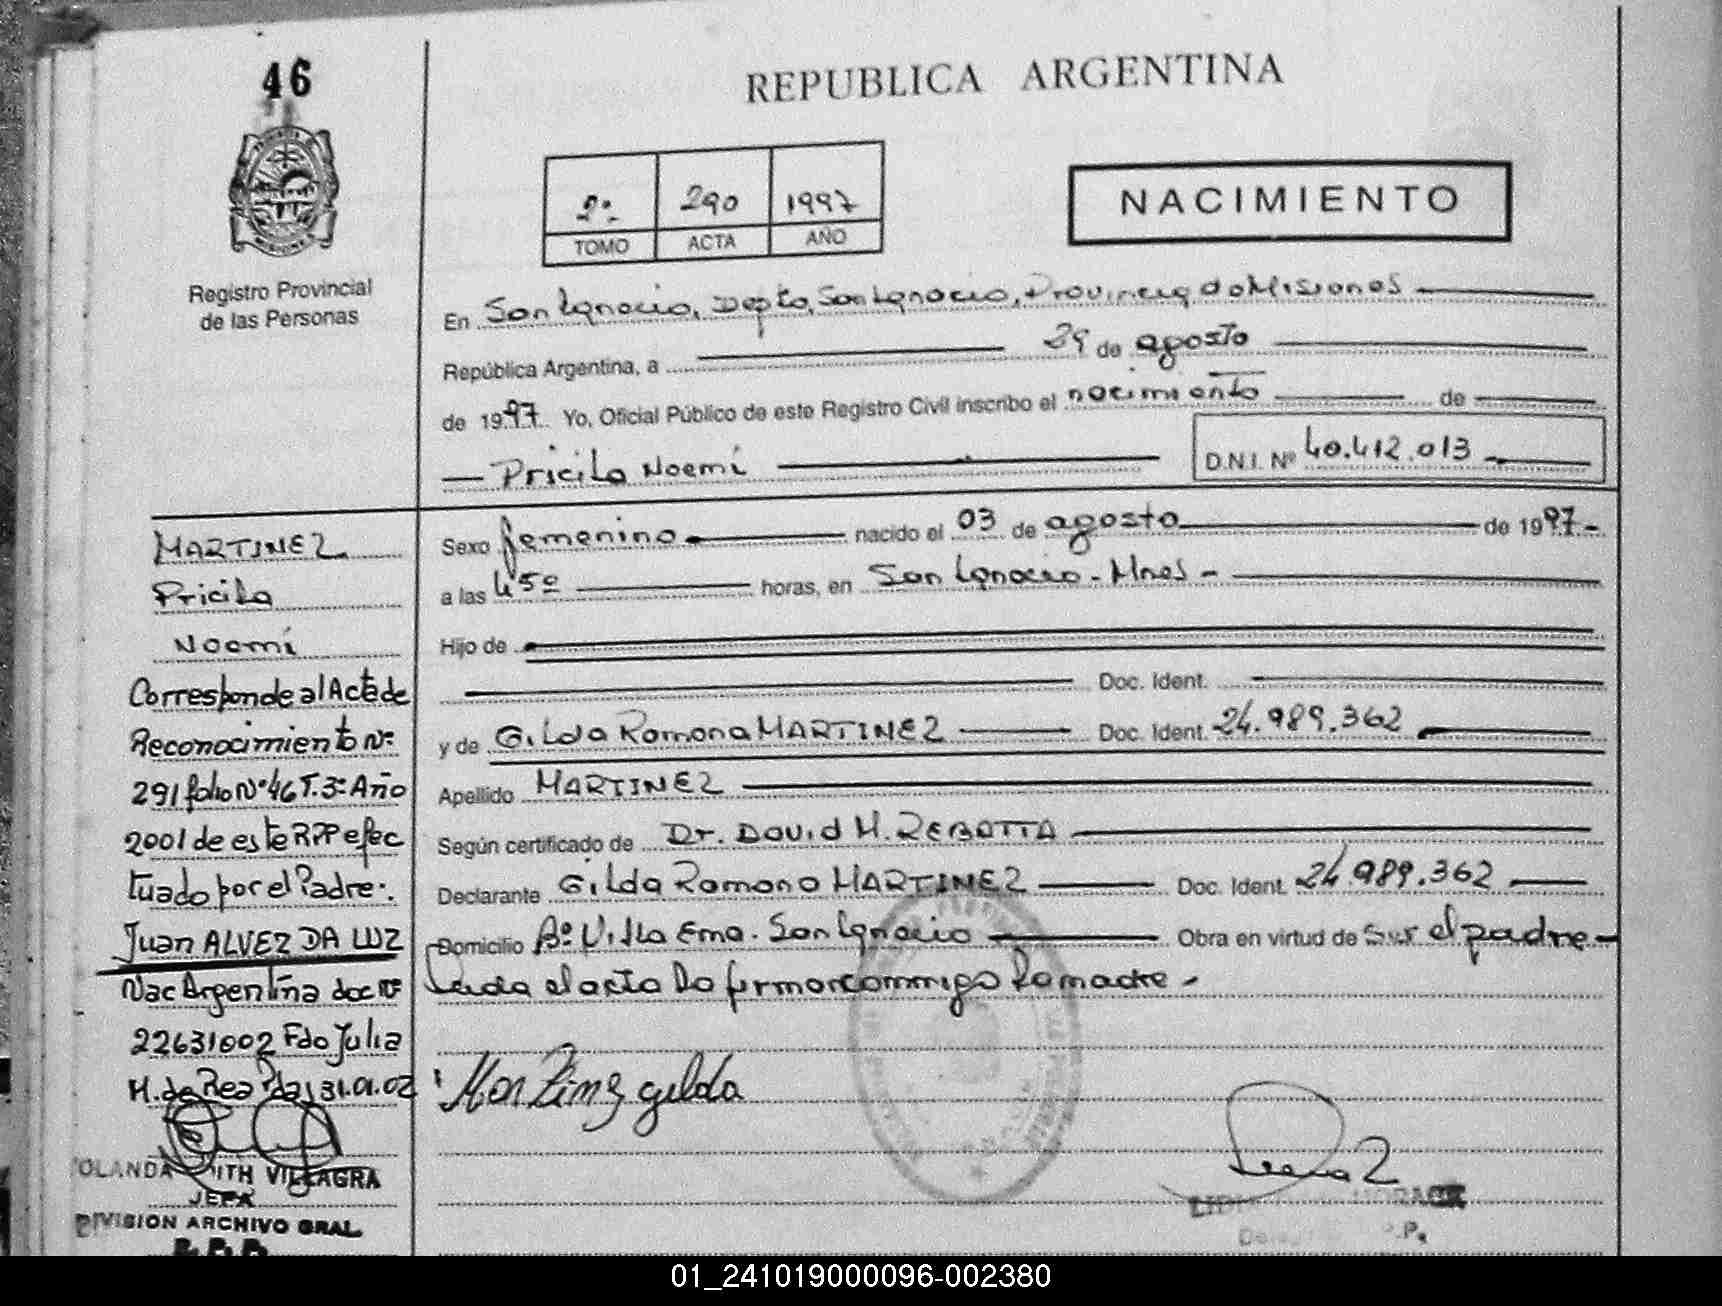 46
REPUBLICA ARGENTINA
2º 290 1997
TOMO ACTA AÑO
NACIMIENTO
Registro Provincial
de las Personas
En San Ignacio, Depto, San Ignacio, Provincia de Misiones
República Argentina, a 29 de agosto
de 1997 Yo, Oficial Público de este Registro Civil inscribo el nacimiento de
Pricila Noemí D.N.I. Nº 40.412.013
MARTINEZ
Pricila
Noemí
Corresponde al Acta de
Reconocimiento Nº
291 folio Nº 46 T. 3º Año
2001 de este RPP efec
tuado por el Padre:
Juan ALVEZ DA LUZ
Nac Argentina doc Nº
22631002 Fdo Julia
M. de Rea Pdas 31.01.02
OLANDA ITH VILLAGRA
JEFA
DIVISION ARCHIVO GRAL
Sexo femenino nacido el 03 de agosto de 1997.-
a las 4:50 horas, en San Ignacio - Mnes -
Hijo de
Doc. Ident.
y de Gilda Ramona MARTINEZ Doc. Ident. 24.989.362
Apellido MARTINEZ
Según certificado de Dr. David H. REBOTTA
Declarante Gilda Ramona MARTINEZ Doc. Ident. 24.989.362
Domicilio Bº Villa Ema. San Ignacio Obra en virtud de Ser el padre -
Leida el acta la firma conmigo la madre -
Martinez gilda
01_241019000096-002380